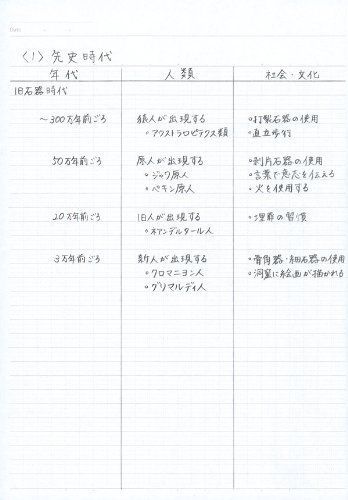 Date
(1) 先史時代
年代 人類 社会・文化
旧石器時代
～300万年前ごろ 猿人が出現する ・打製石器の使用
・アウストラロピテクス類 ・直立歩行
50万年前ごろ 原人が出現する ・剥片石器の使用
・ジャワ原人 ・言葉で意志を伝える
・ペキン原人 ・火を使用する
20万年前ごろ 旧人が出現する ・埋葬の習慣
・ネアンデルタール人
3万年前ごろ 新人が出現する ・骨角器・細石器の使用
・クロマニヨン人 ・洞窟に絵画が描かれる
・グリマルディ人